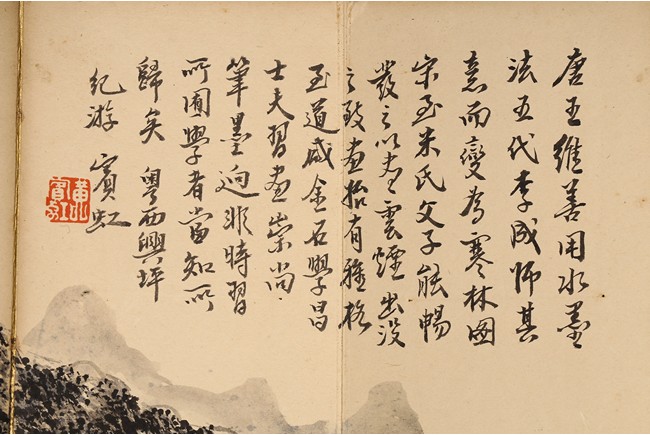 唐王維善用水墨
法五代李成師其
意而變為寒林圖
宋至米氏父子能暢
發之以雲煙出沒
之致畫始有雅格
至道咸金石學昌
士夫習畫崇尚
筆墨迥非時習
所囿學者當知所
歸矣 粵西興坪
紀游 賓虹
黃賓虹